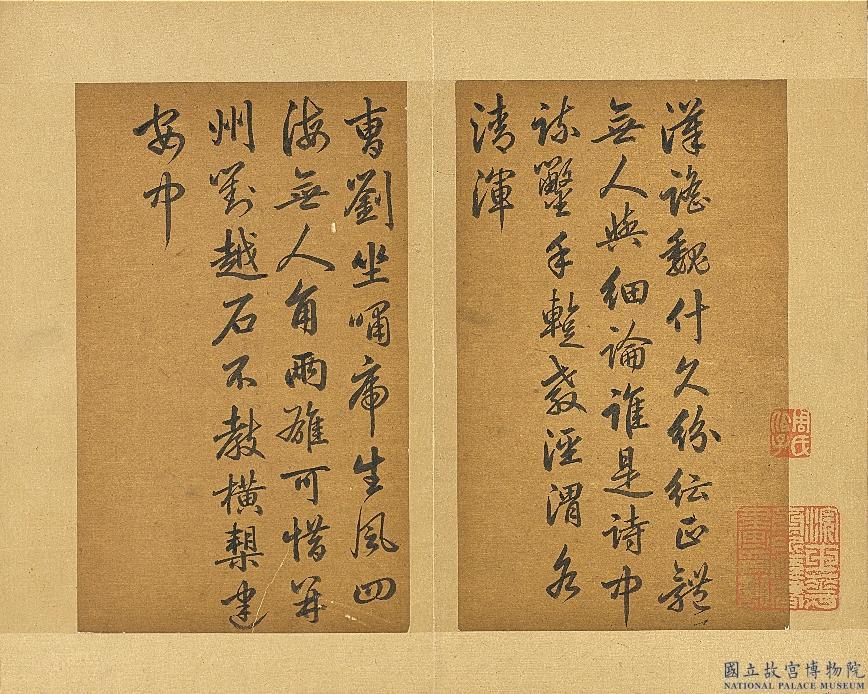 漢謠魏什久紛紜正體
無人與細論誰是詩中
疏鑿手暫教涇渭各
清渾
曹劉坐嘯虎生風四
海無人角兩雄可惜并
州劉越石不教橫槊建
安中
周氏
國立故宮博物院
NATIONAL PALACE MUSEUM